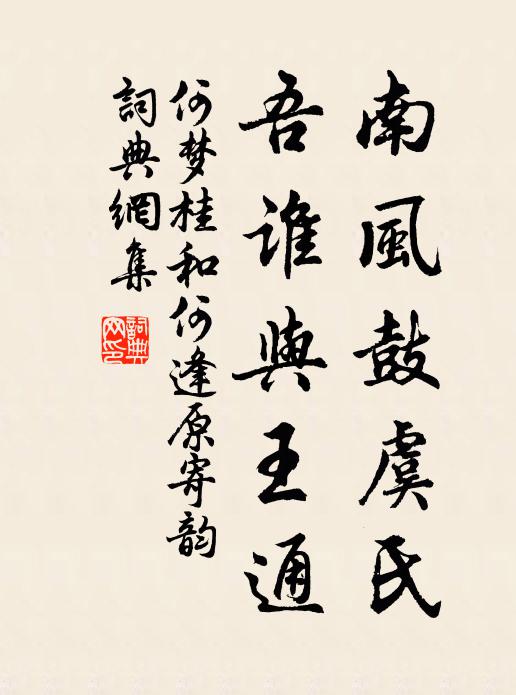 南風鼓虞氏
吾誰與王通
何梦桂和何逢原寄韵
詞典網集
詞典网印